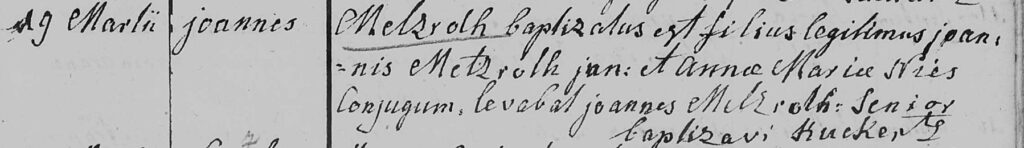 19 Martii joannes Metzroth baptizatus est filius legitimus joan,
=nis Metzroth jun: et Annæ Mariæ Nies
Conjugum, levabat joannes Metzroth: Senior
baptizavi Kuckerts